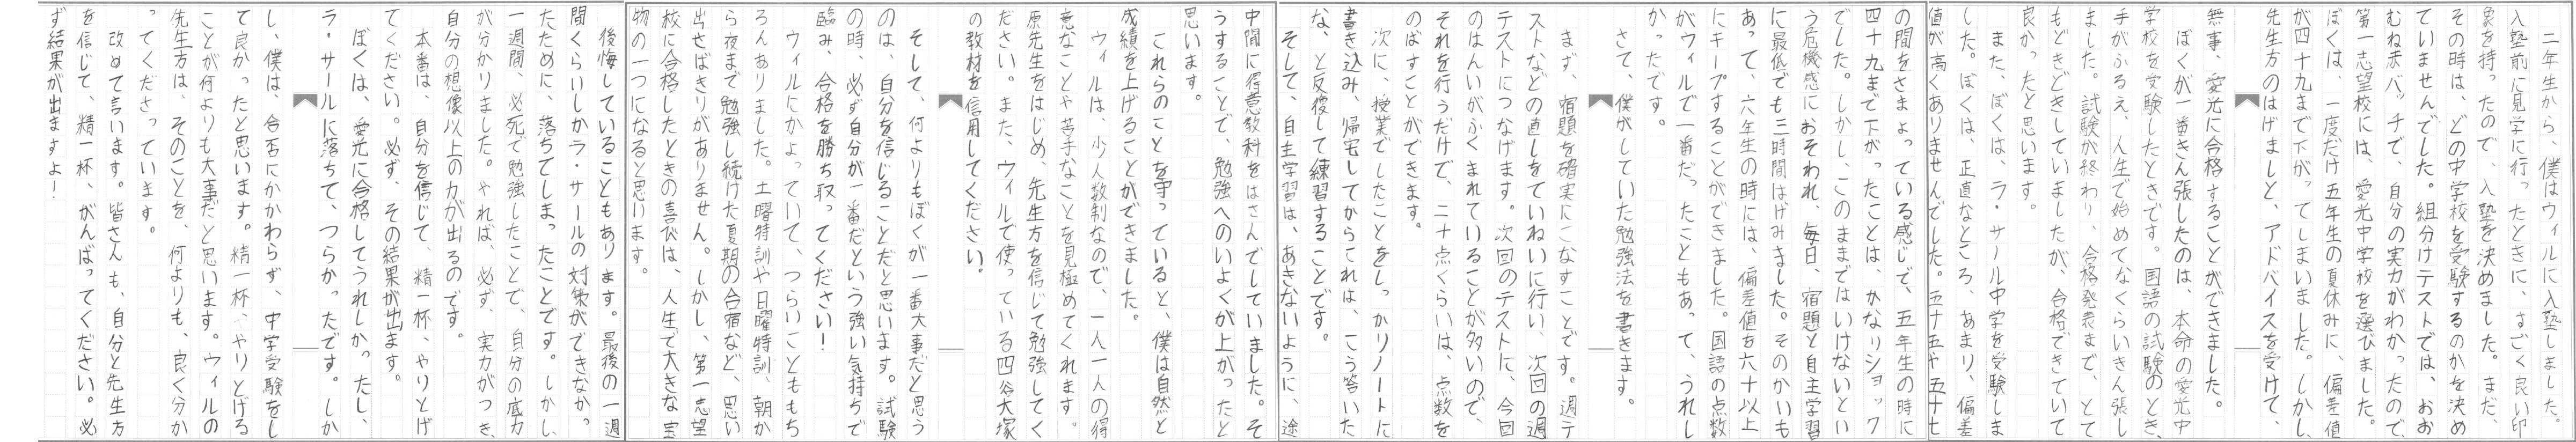 二年生から、僕はウィルに入塾しました。
入塾前に見学に行ったときに、すごく良い印
象を持ったので、入塾を決めました。まだ、
その時は、どの中学校を受験するのかを決め
ていませんでした。組分けテストでは、おお
むね赤バッチで、自分の実力がわかったので、
第一志望校には、愛光中学校を選びました。
ぼくは、一度だけ五年生の夏休みに、偏差値
が四十九まで下がってしまいました。しかし、
先生方のはげましと、アドバイスを受けて、
無事、愛光に合格することができました。
ぼくが一番きん張したのは、本命の愛光中
学校を受験したときです。国語の試験のとき、
手がふるえ、人生で始めてなくらいきん張し
ました。試験が終わり、合格発表まで、とて
もどきどきしていましたが、合格できていて
良かったと思います。
また、ぼくは、ラ・サール中学を受験しま
した。ぼくは、正直なところ、あまり、偏差
値が高くありませんでした。五十五や五十七
の間をさまよっている感じで、五年生の時に
四十九まで下がったことは、かなりショック
でした。しかし、このままではいけないとい
う危機感におそわれ、毎日、宿題と自主学習
に最低でも三時間はげみました。そのかいも
あって、六年生の時には、偏差値を六十以上
にキープすることができました。国語の点数
がウィルで一番だったこともあって、うれし
かったです。
さて、僕がしていた勉強法を書きます。
まず、宿題を確実にこなすことです。週テ
ストなどの直しをていねいに行い、次回の週
テストにつなげます。次回のテストに、今回
のはんいがふくまれていることが多いので、
それを行うだけで、二十点くらいは、点数を
のばすことができます。
次に、授業でしたことをしっかりノートに
書き込み、帰宅してからこれは、こう答いた
な、と反復して練習することです。
そして、自主学習は、あきないように、途
中間に得意教科をはさんでしていました。そ
うすることで、勉強へのいよくが上がったと
思います。
これらのことを守っていると、僕は自然と
成績を上げることができました。
ウィルは、少人数制なので、一人一人の得
意なことや苦手なことを見極めてくれます。
原先生をはじめ、先生方を信じて勉強してく
ださい。また、ウィルで使っている四谷大塚
の教材を信用してください。
そして、何よりもぼくが一番大事だと思う
のは、自分を信じることだと思います。試験
の時、必ず自分が一番だという強い気持ちで
臨み、合格を勝ち取ってください！
ウィルにかよっていて、つらいことももち
ろんありました。土曜特訓や日曜特訓、朝か
ら夜まで勉強し続けた夏期の合宿など、思い
出せばきりがありません。しかし、第一志望
校に合格したときの喜びは、人生で大きな宝
物の一つになると思います。
後悔していることもあります。最後の一週
間くらいしかラ・サールの対策ができなかっ
たために、落ちてしまったことです。しかし、
一週間、必死で勉強したことで、自分の底力
が分かりました。やれば、必ず、実力がつき、
自分の想像以上の力が出るのです。
本番は、自分を信じて、精一杯、やりとげ
てください。必ず、その結果が出ます。
ぼくは、愛光に合格してうれしかったし、
ラ・サールに落ちて、つらかったです。しか
し、僕は、合否にかかわらず、中学受験をし
て良かったと思います。精一杯、やりとげる
ことが何よりも大事だと思います。ウィルの
先生方は、そのことを、何よりも、良く分か
ってくださっています。
改めて言います。皆さんも、自分と先生方
を信じて、精一杯、がんばってください。必
ず結果が出ますよ！